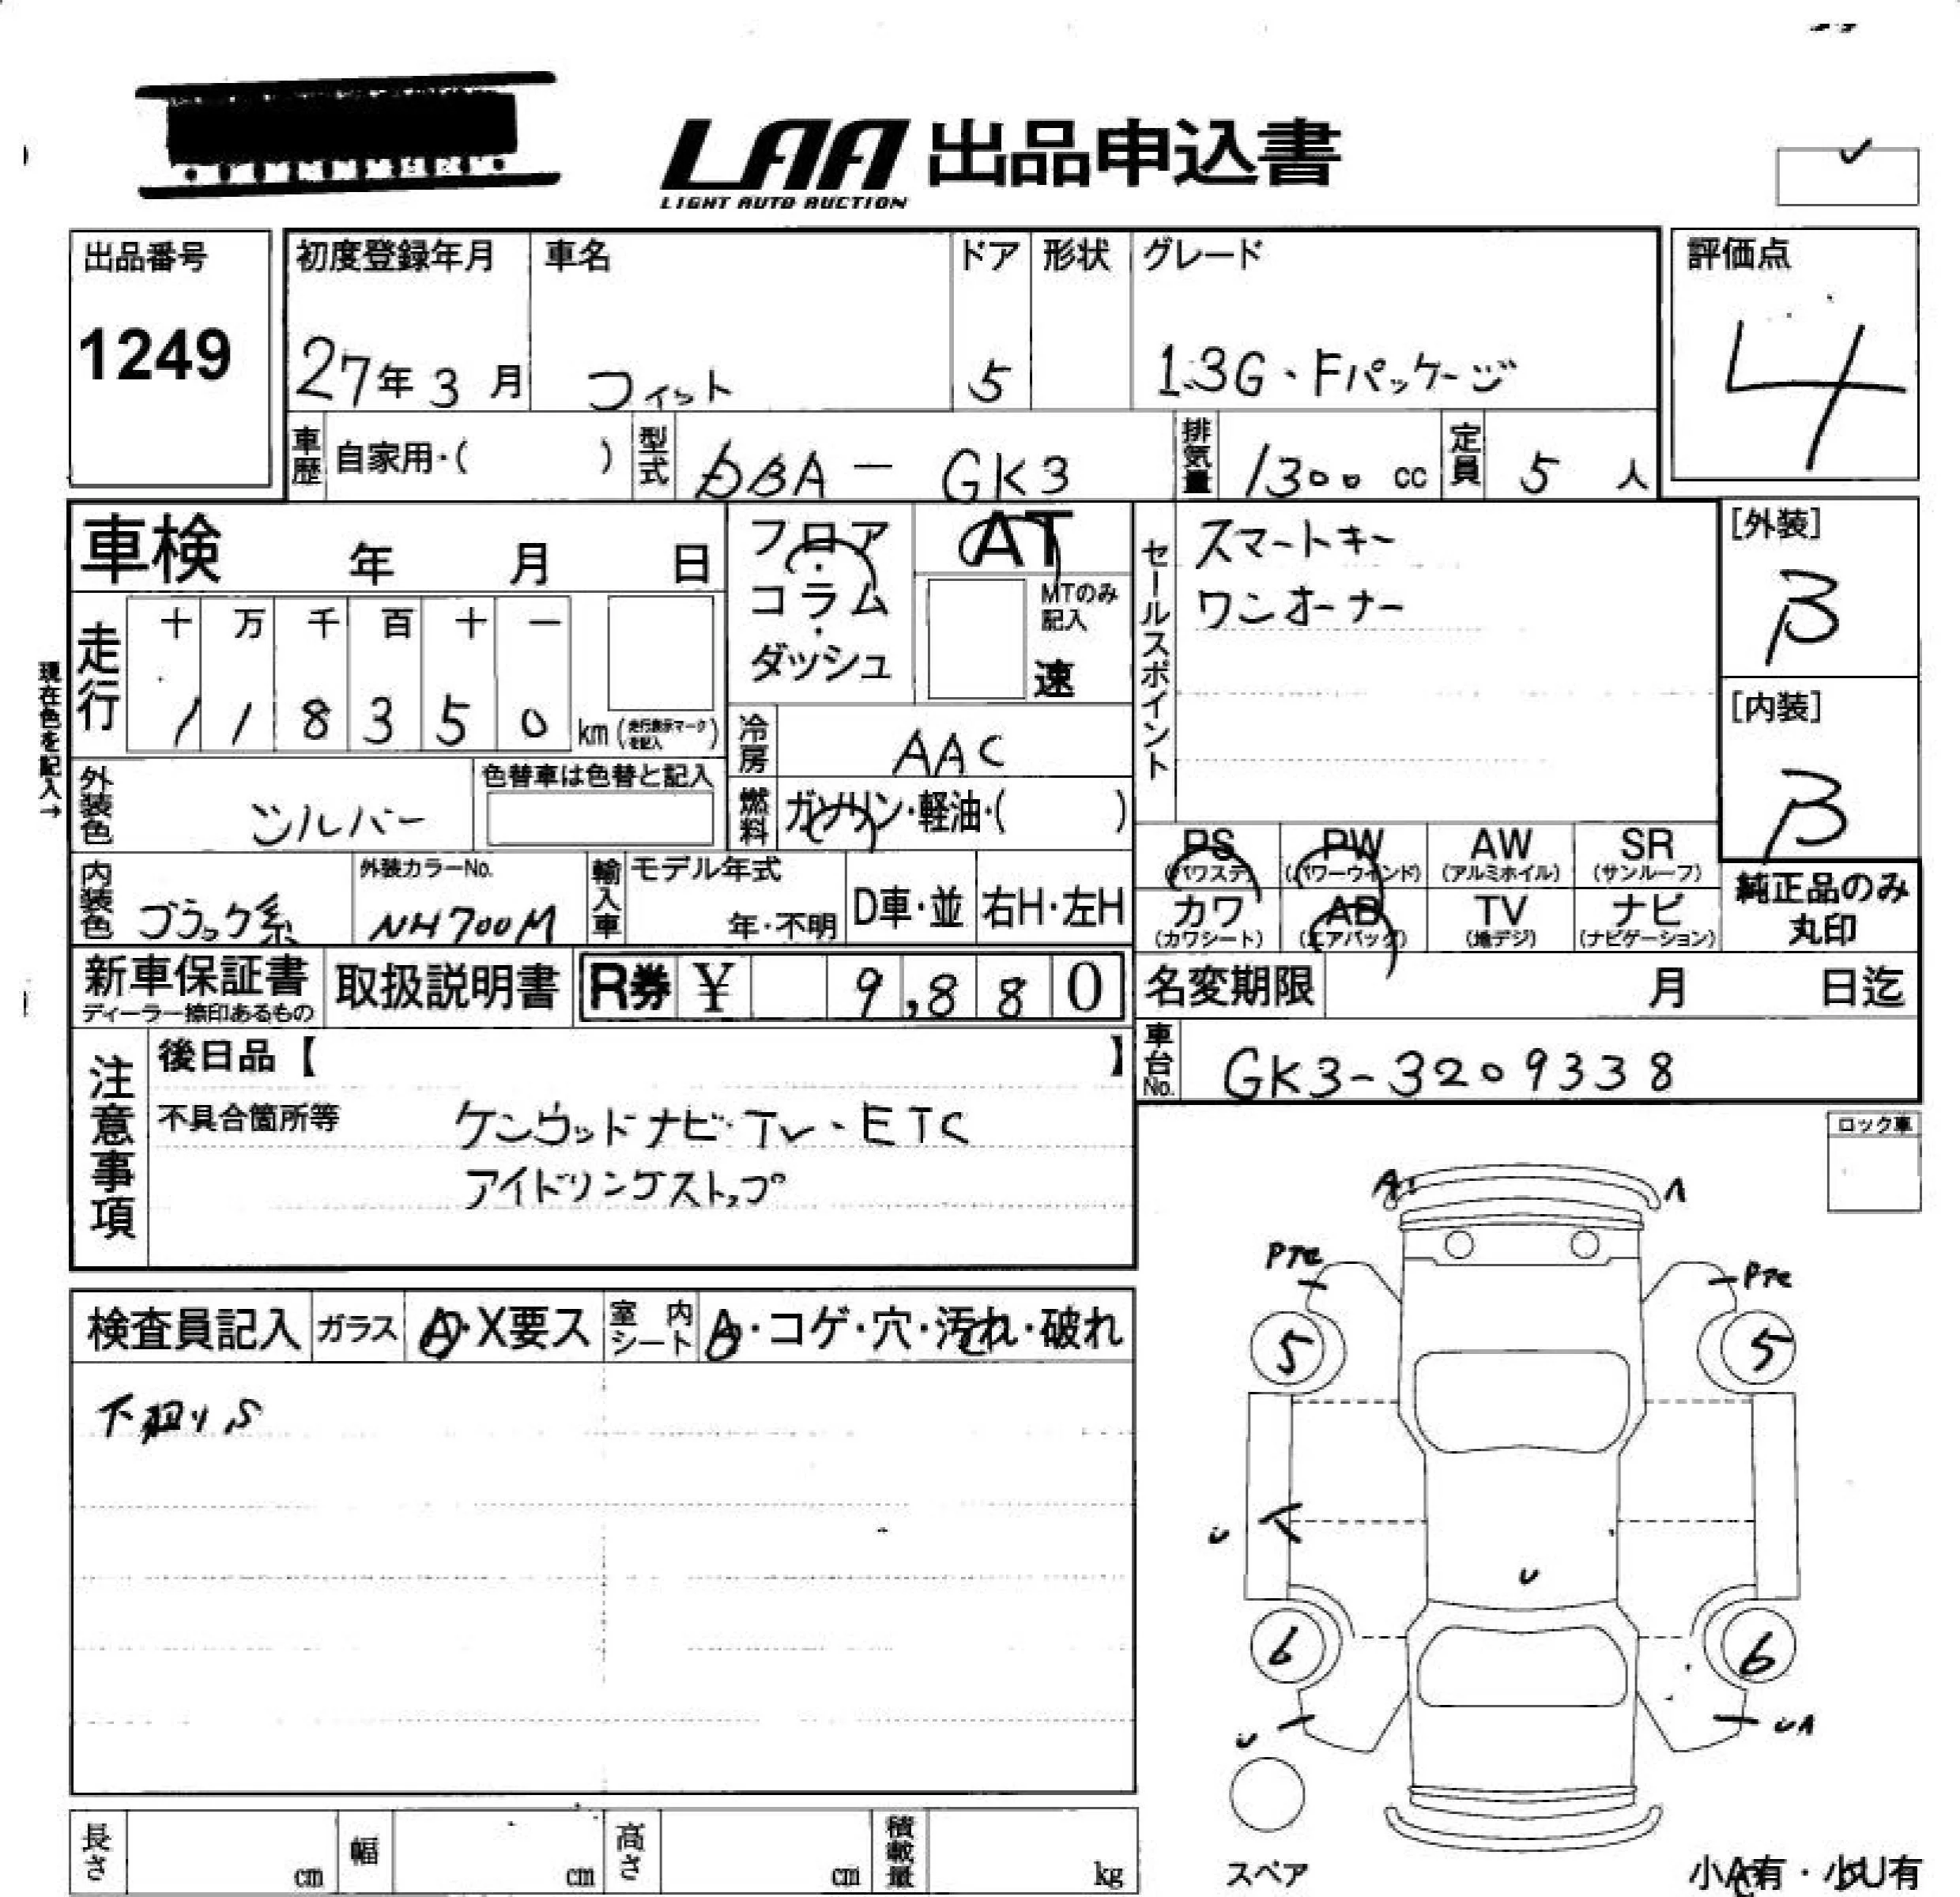 LAA 出品申込書
LIGHT AUTO AUCTION
出品番号
1249
初度登録年月 車名 ドア 形状 グレード
27年 3月 フィット 5 1.3G・Fパッケージ
評価点
4
車歴 自家用・( ) 型式 DBA－GK3 排気量 1300 cc 定員 5 人
車検 年 月 日
フロア・コラム・ダッシュ
AT
MTのみ記入
速
セールスポイント
スマートキー
ワンオーナー
[外装]
B
[内装]
B
現在色を記入→
走行 十 万 千 百 十 一
1 1 8 3 5 0 km (走行表示マークを記入)
冷房 AAC
外装色 シルバー 色替車は色替と記入
燃料 ガソリン・軽油・( )
PS (パワステ) PW (パワーウインド) AW (アルミホイル) SR (サンルーフ)
カワ (カワシート) AB (エアバッグ) TV (地デジ) ナビ (ナビゲーション)
純正品のみ
丸印
内装色 ブラック系 外装カラーNo. NH700M 輸入車 モデル年式 年・不明 D車・並 右H・左H
新車保証書 取扱説明書 R券 ¥ 9,880
ディーラー捺印あるもの
名変期限 月 日迄
車台No. GK3-3209338
注意事項
後日品【 】
不具合箇所等 ケンウッドナビ・TV・ETC
アイドリングストップ
ロック車
検査員記入 ガラス A・X要ス 室内シート A・コゲ・穴・汚れ・破れ
A A
5 5
U
U
6 6
U UA
スペア
小A有・小U有
長さ cm 幅 cm 高さ cm 積載量 kg